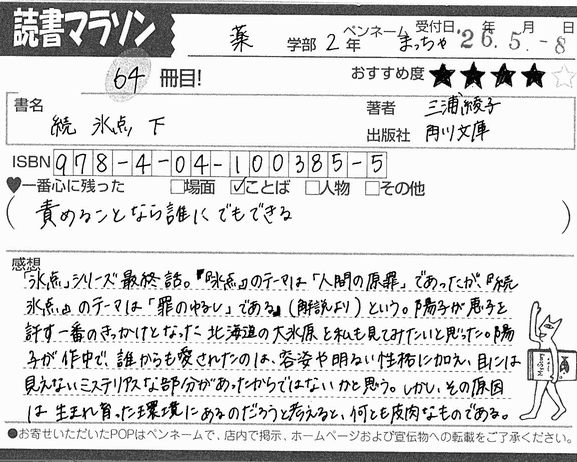 読書マラソン
薬 学部 2年 ペンネーム まっちゃ 受付日 '26.5.-8 年 月 日
64 冊目!
おすすめ度 ★★★★☆
書名 続 氷点 下
著者 三浦綾子
出版社 角川文庫
ISBN 978-4-04-100385-5
♥一番心に残った □場面 ☑ことば □人物 □その他
(責めることなら誰にでもできる)
感想
「氷点」シリーズ最終話。『氷点』のテーマは「人間の原罪」であったが『続
氷点』のテーマは「罪のゆるし」である(解説より)という。陽子が恵子を
許す一番のきっかけとなった北海道の大氷原を私も見てみたいと思った。陽
子が作中で、誰からも愛されたのは、容姿や明るい性格に加え、目には
見えないミステリアスな部分があったからではないかと思う。しかし、その原因
は生まれ育った環境にあるのだろうと考えると、何とも皮肉なものである。
●お寄せいただいたPOPはペンネームで、店内で掲示、ホームページおよび宣伝物への転載をご了承ください。